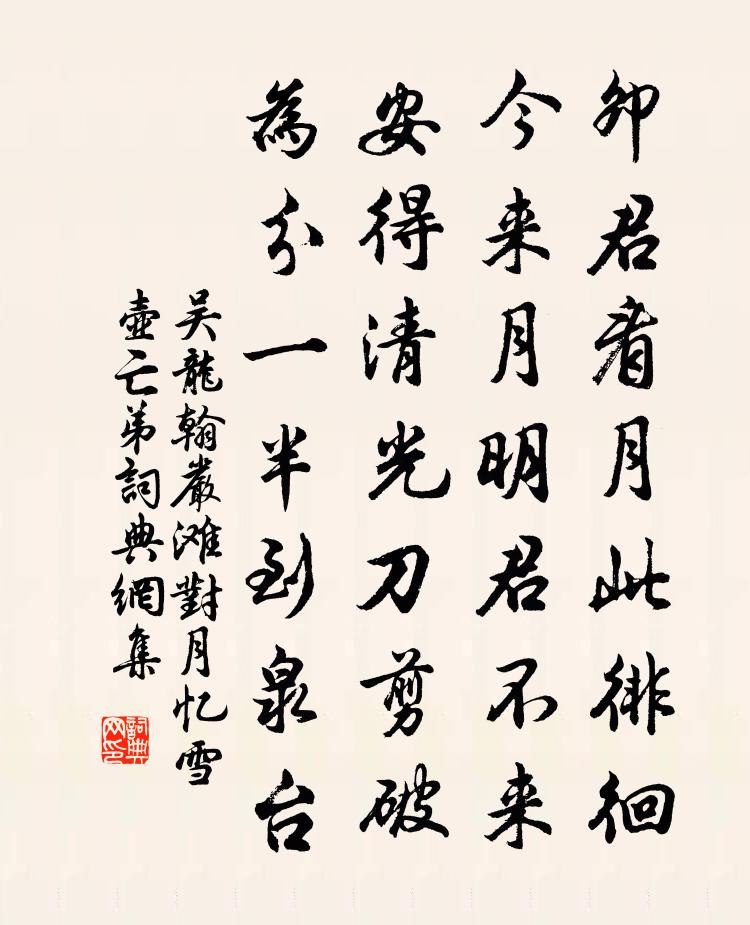 卯君看月此徘徊
今来月明君不来
安得清光刀剪破
為分一半到泉台
吴龍翰嚴滩對月忆雪
壺亡弟詞典網集
詞典
网印